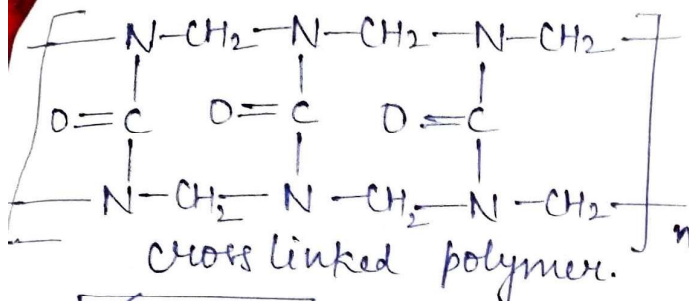 N-CH2-N-CH2-N-CH2
O=C O=C O=C
N-CH2-N-CH2-N-CH2
n
cross linked polymer.